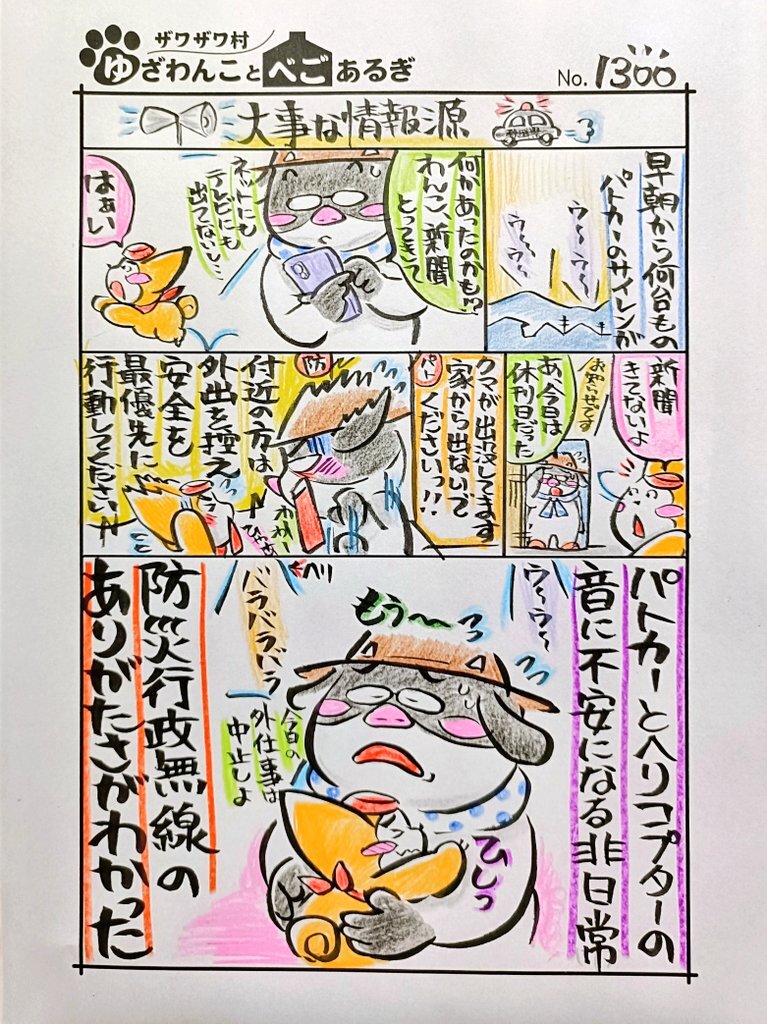 ザワザワ村
ゆざわんこと べご あるぎ
No. 1300
大事な情報源
早朝から何台もの
パトカーのサイレンが
ウ〜ウ〜
ウ〜ウ〜
何かあったのかも!?
わんこ、新聞
とってきて
ネットにも
テレビにも
出てないし…
はぁい
新聞
きてないよ
お知らせです
あ、今日は
休刊日だった
パト
クマが出没してます
家から出ないで
くださいっ!!
防
付近の方は
外出を控え
安全を
最優先に
行動してください
わわー
パトカーとヘリコプターの
音に不安になる非日常
ウ〜ウ〜
もう〜
ヘリ
バラバラバラ
今日の
外仕事は
中止しよ
ひしっ
防災行政無線の
ありがたさがわかった